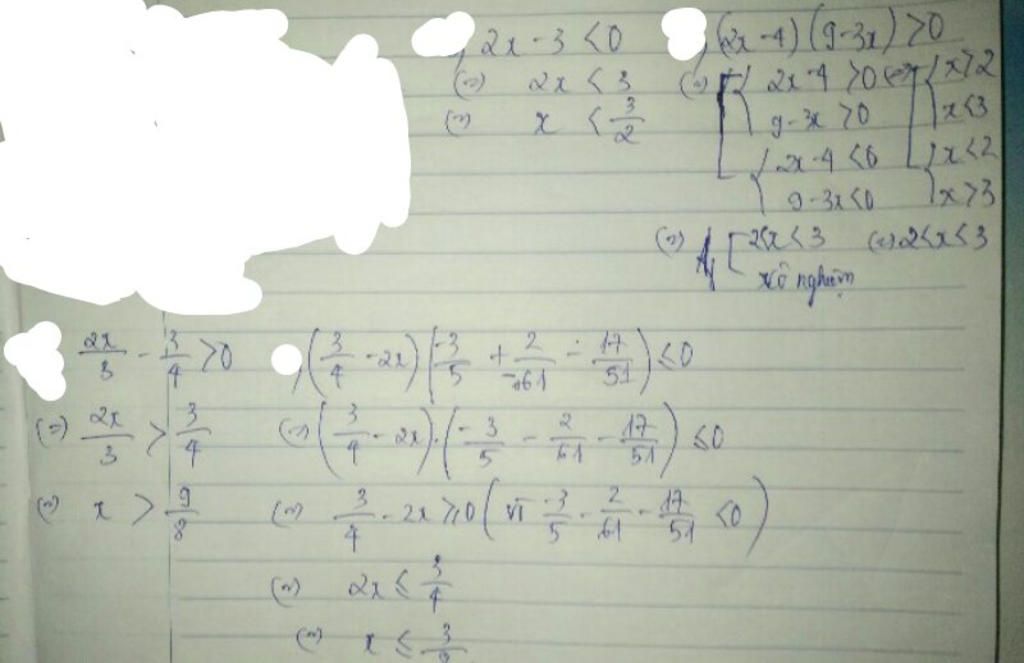 2x - 3 < 0
(=) 2x < 3
(=) x < 3/2
(2x - 4)(9 - 3x) > 0
(=) [ { 2x - 4 > 0 (=) [ { x > 2
9 - 3x > 0 x < 3
{ 2x - 4 < 0 { x < 2
9 - 3x < 0 x > 3
(=) [ 2 < x < 3 (=) 2 < x < 3
vô nghiệm
2x/3 - 3/4 > 0
(=) 2x/3 > 3/4
(=) x > 9/8
(3/4 - 2x)(-3/5 + 2/-61 - 17/51) ≤ 0
(=) (3/4 - 2x).(-3/5 - 2/61 - 17/51) ≤ 0
(=) 3/4 - 2x ≥ 0 (vì -3/5 - 2/61 - 17/51 < 0)
(=) 2x ≤ 3/4
(=) x ≤ 3/